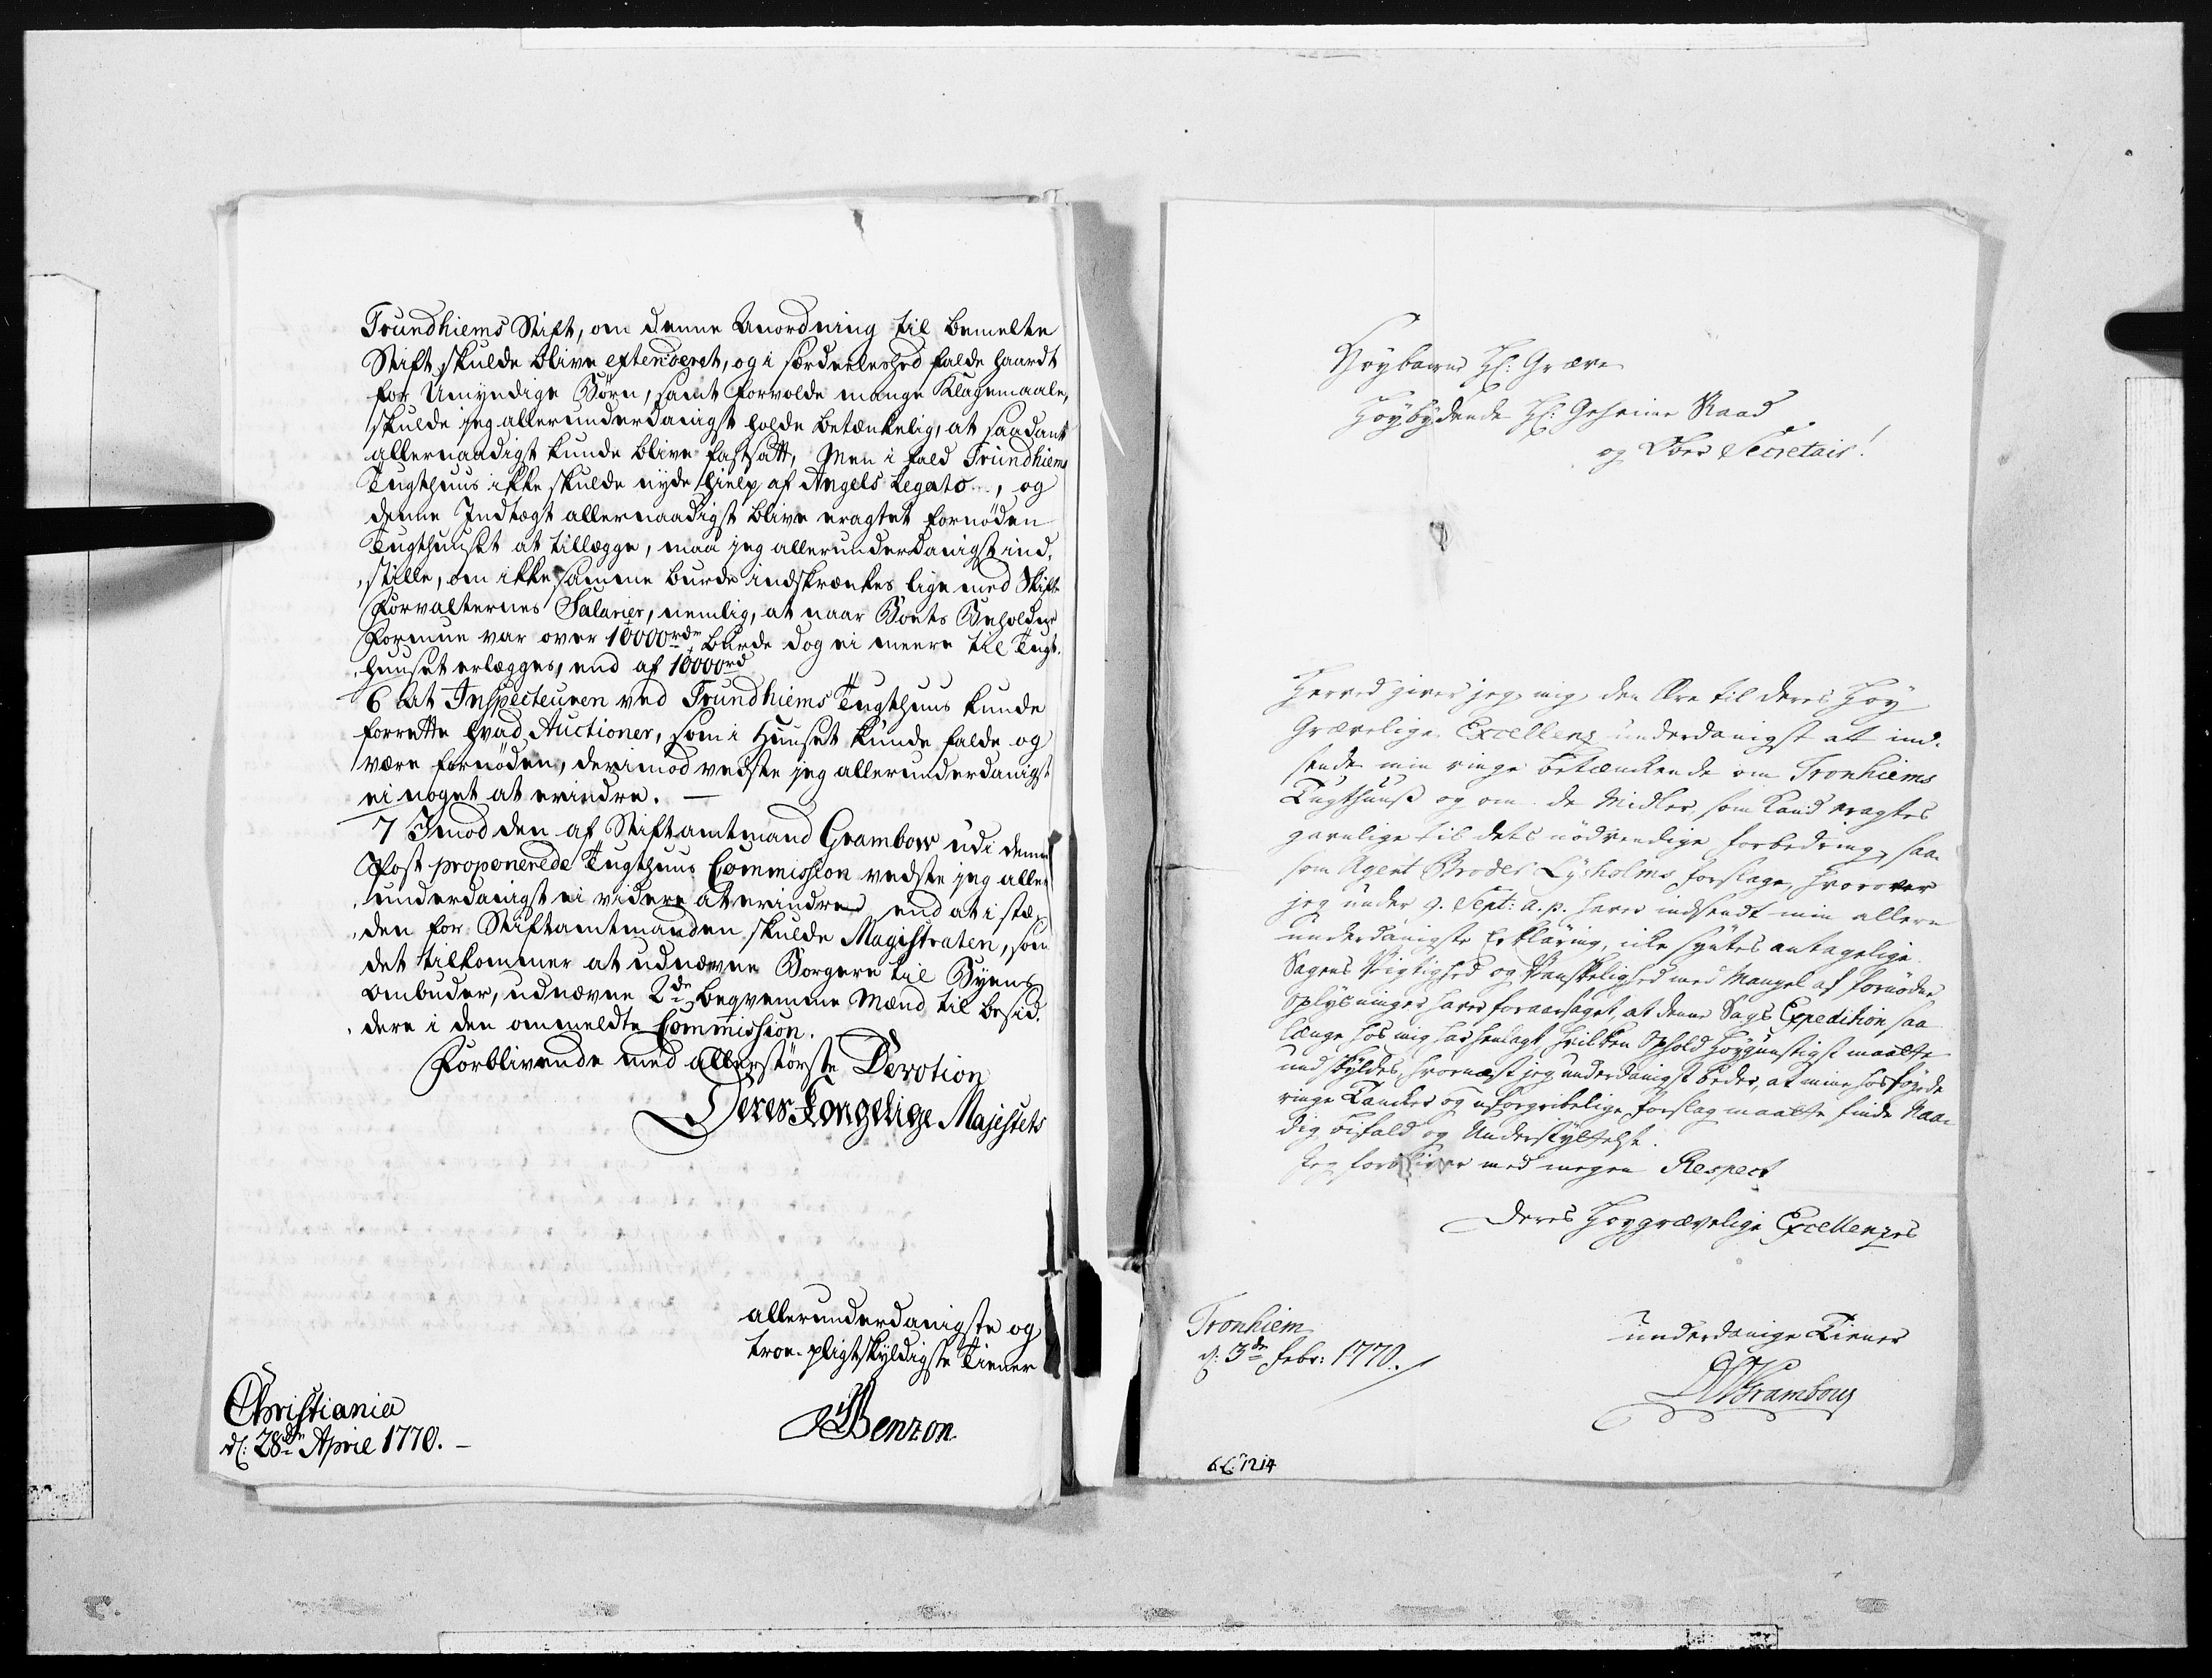 Trundhiems Stift, om denne Anordning til bemelte
Stift skulde blive extenderet, og i særdeleshed falde haardt
for Umyndige Børn, samt forvolde mange Klagemaale,
skulde jeg allerunderdanigst holde betænkelig, at saadant
allernaadigst kunde blive fastsatt, Men i fald Trundhiems
Tugthuus ikke skulde nyde hielp af Angels Legato, og
denne Indtægt allernaadigst blive eragtet fornöden
Tugthuuset at tillægge, maa jeg allerunderdanigst ind-
stille, om ikke samme burde indskrænkes lige med Skifte
Forvalternes Salarier, nemlig, at naar Boets Beholdne
Formue var over 10000rdr, burde dog ei meere til Tugt-
huuset erlægges, end af 10000rd
6 At Inspecteuren ved Trundhiems Tugthuus kunde
forrette hvad Auctioner, som i Huuset kunde falde og
være fornöden, derimod vedste jeg allerunderdanigst
ei noget at erindre. —
7 Imod den af Stiftamtmand Grambow udi denne
Post proponerede Tugthuus Commission vedste jeg aller-
underdanigst ei videre at erindre end at i stæ-
den for Stiftamtmanden skulde Magistraten, som
det tilkommer at udnævne Borgere til Byens
Ombuder, udnævne 2de beqvemme Mænd til besid-
dere i den ommeldte Commission.
Forblivende med allerstörste Devotion
Deres Kongelige Majestets
allerunderdanigste og
troe-pligtskyldigste Tiener
Benzon.
Christiania
d: 28de April 1770. —
Höybaarne Hr: Greve
Höybydende Hr: Geheime Raad
og Ober Secretair!
Herved giver jeg mig den Ære til Deres Höy
Grævelige Excellenz underdanigst at ind-
sende min ringe betænkende om Tronhiems
Tugthuus og om de Midler, som kand eragtes
gavnlige til dets nödvendige forbedring, saa-
som Agent Broder Lysholms forslage, hvorover
jeg under 9. Sept: a. p. haver indsendt min allere
underdanigste Erklæring, icke syntes antagelige.
Sagens Vigtighed og Vanskelighed med Mangel af fornödne
Oplysninger haver foraarsaget, at denne Sags Expedition saa
længe hos mig har henlagt hvilken Ophold höygunstigst maatte
undskyldes, hvornæst jeg underdanigst beder, at mine hosföyede
ringe Tancker og uforgribelige forslag maatte finde Naa-
dig bifald og Understyttelse.
Jeg forbliver med megen Respect
Deres Höygrævelige Excellenzes
underdanige Tiener
Grambow
Tronhiem
d: 3de Febr: 1770.